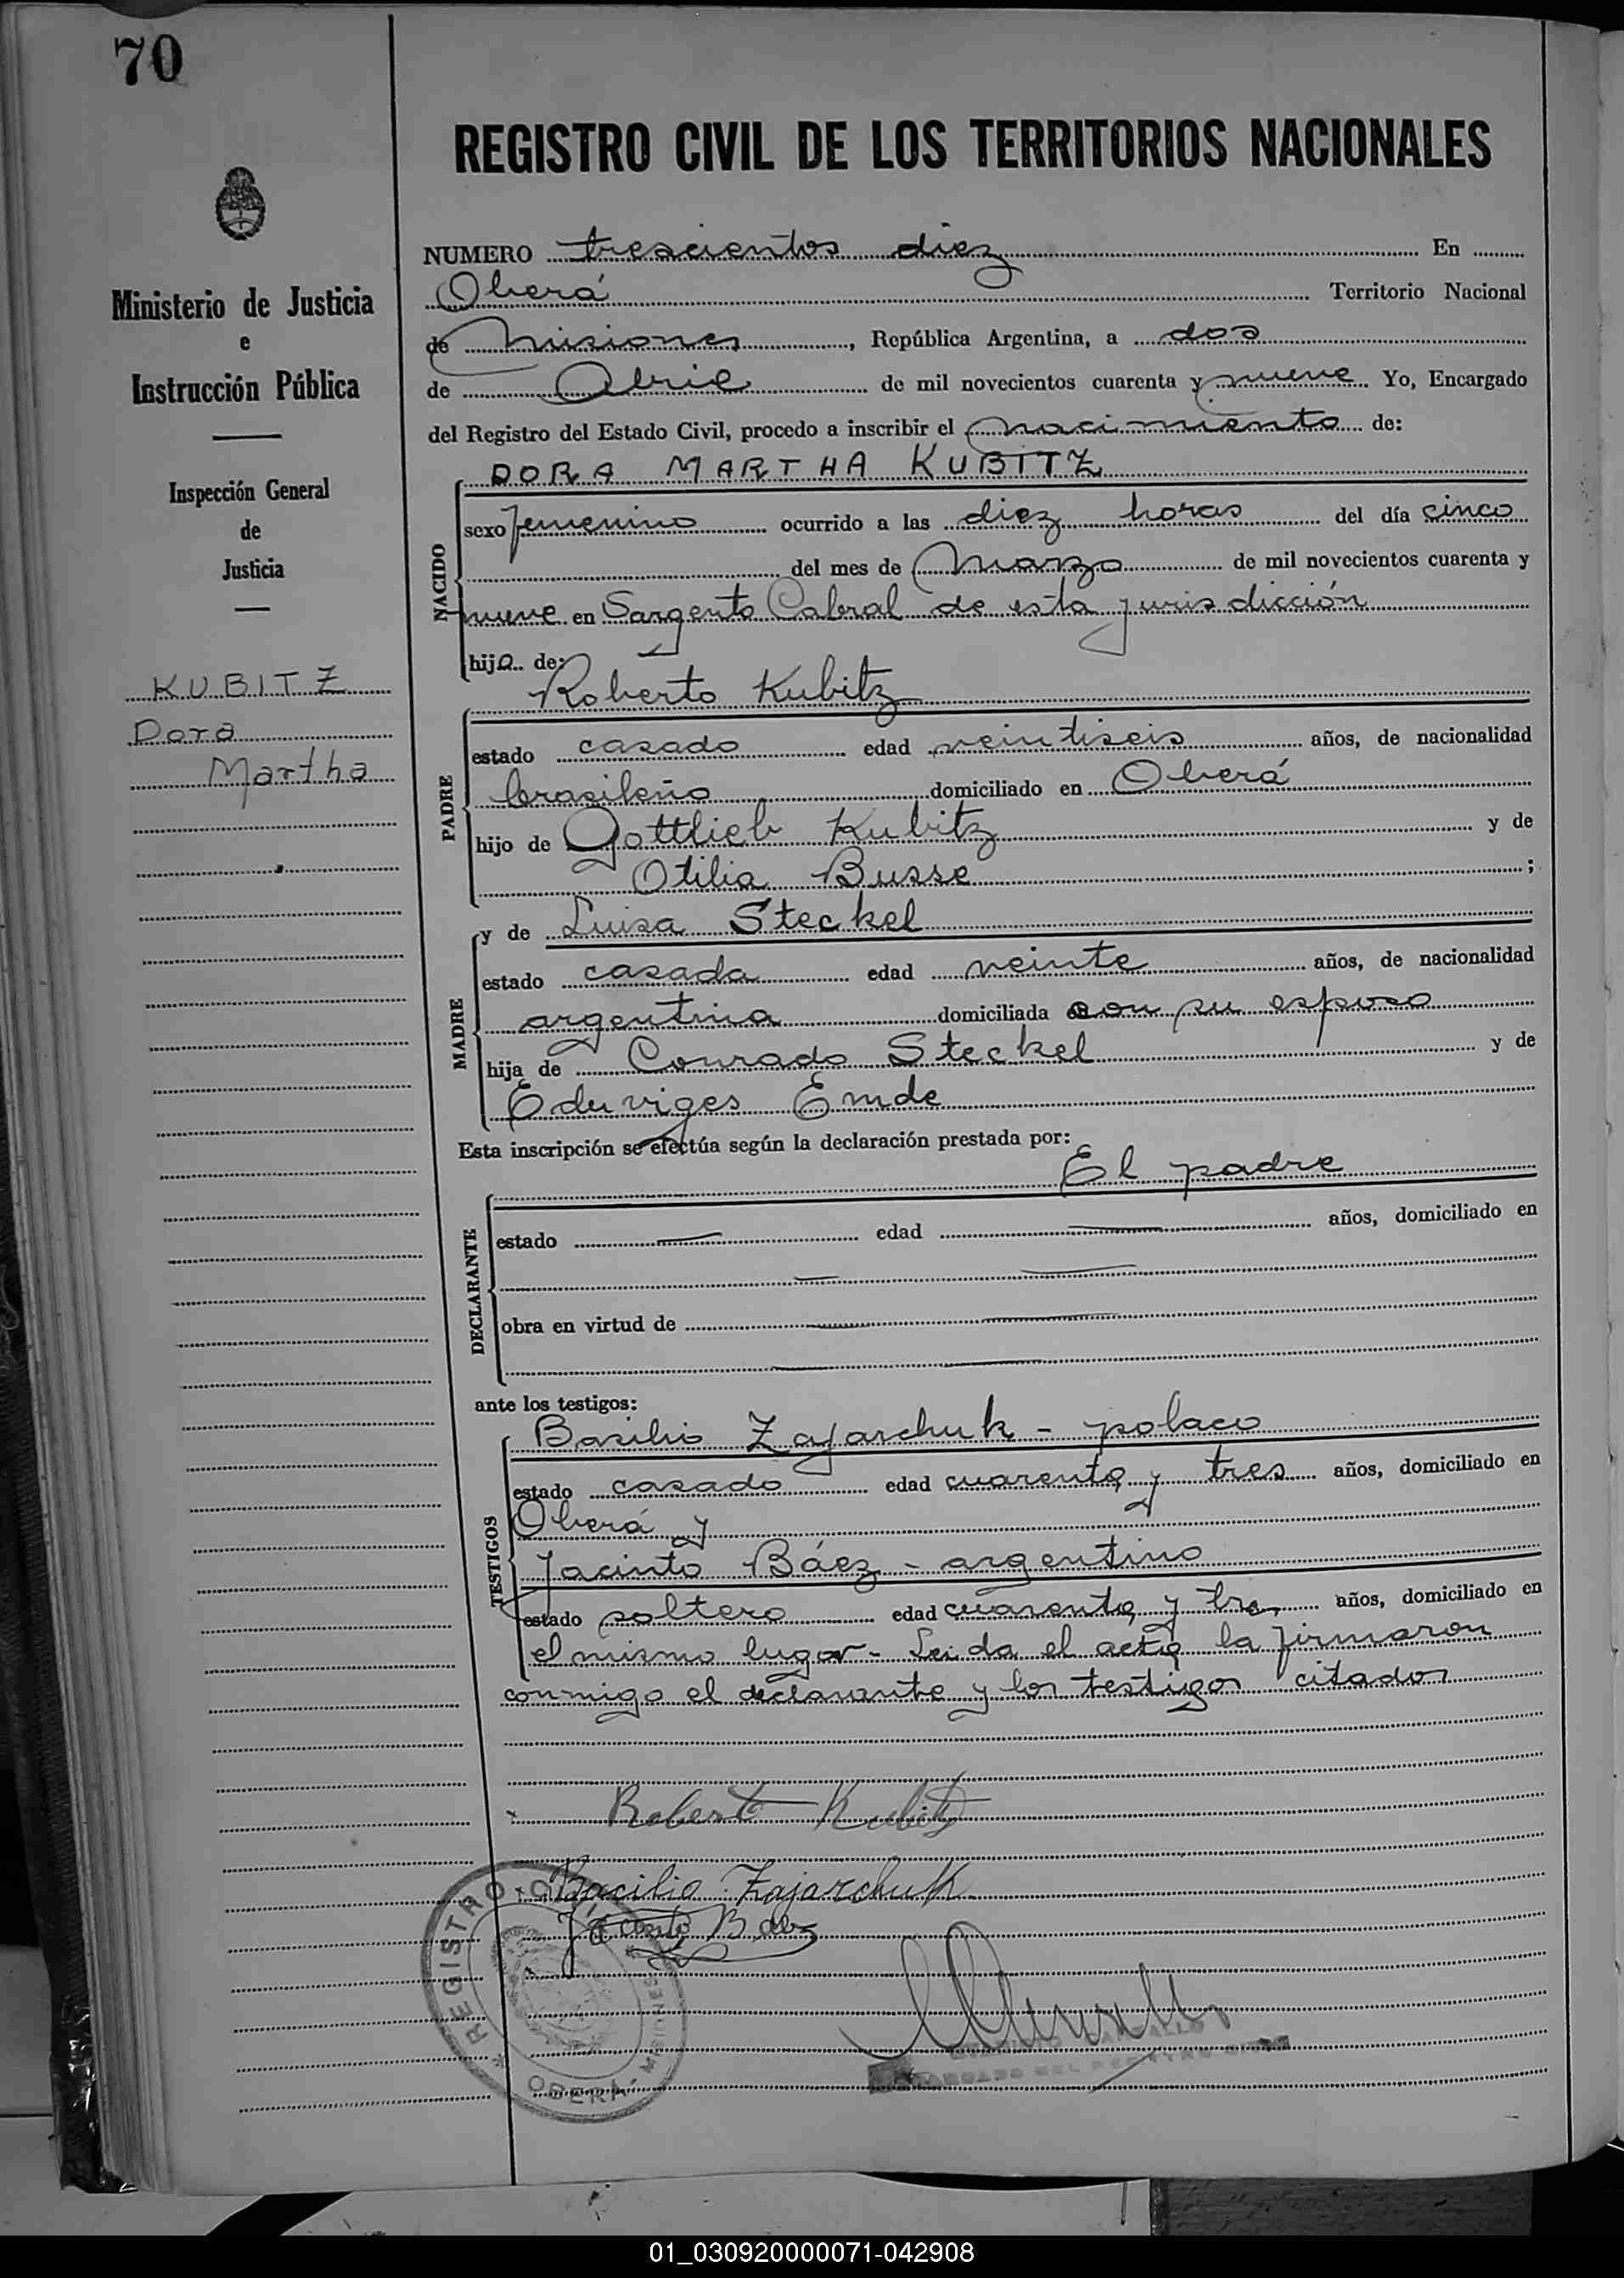 70
REGISTRO CIVIL DE LOS TERRITORIOS NACIONALES
Ministerio de Justicia
e
Instrucción Pública
Inspección General
de
Justicia
KUBITZ
Dora
Martha
NUMERO trescientos diez En
Oberá Territorio Nacional
de Misiones, República Argentina, a dos
de Abril de mil novecientos cuarenta y nueve Yo, Encargado
del Registro del Estado Civil, procedo a inscribir el nacimiento de:
DORA MARTHA KUBITZ
NACIDO
sexo femenino ocurrido a las diez horas del día cinco
del mes de Marzo de mil novecientos cuarenta y
nueve en Sargento Cabral de esta jurisdicción
hija de:
Roberto Kubitz
PADRE
estado casado edad veintiseis años, de nacionalidad
brasileño domiciliado en Oberá
hijo de Gottlieb Kubitz y de
Otilia Busse ;
y de Luisa Steckel
MADRE
estado casada edad veinte años, de nacionalidad
argentina domiciliada con su esposo
hija de Conrado Steckel y de
Eduviges Emde
Esta inscripción se efectúa según la declaración prestada por:
El padre
DECLARANTE
estado edad años, domiciliado en
obra en virtud de
ante los testigos:
Basilio Zajarchuk - polaco
TESTIGOS
estado casado edad cuarenta y tres años, domiciliado en
Oberá y
Jacinto Báez - argentino
estado soltero edad cuarenta y tres años, domiciliado en
el mismo lugar - Leida el acta la firmaron
conmigo el declarante y los testigos citados
Roberto Kubitz
Bacilio Zajarchuk
Jacinto Baez
REGISTRO
OBERA MISIONES
01_030920000071-042908